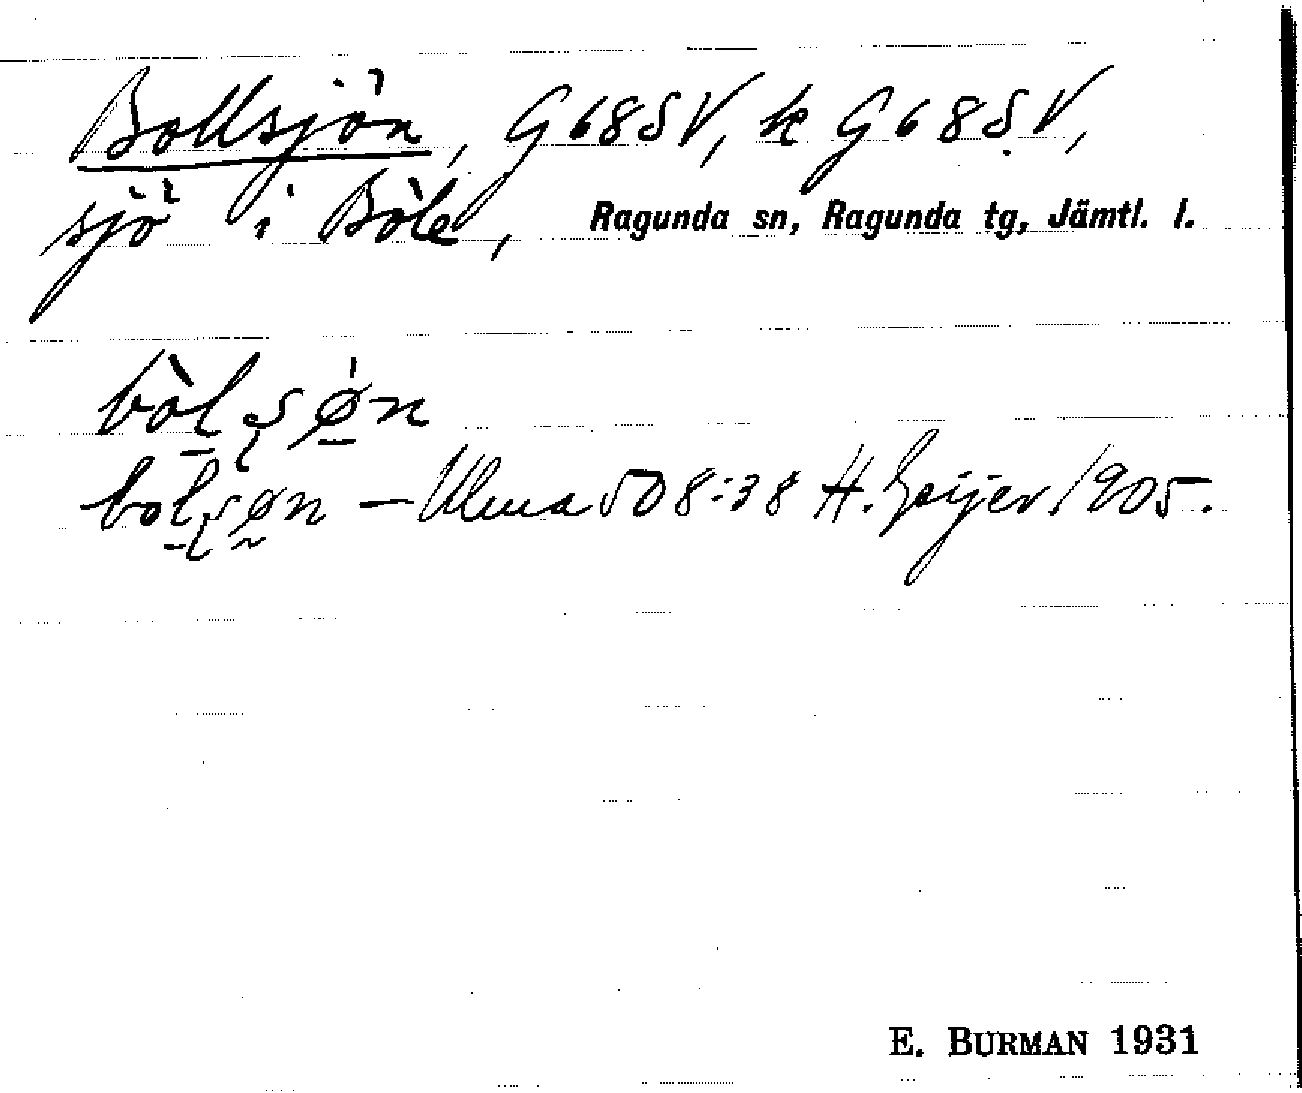 Bollsjön, G68SV, k G68SV,
sjö i Böle, Ragunda sn, Ragunda tg, Jämtl. l.
bòl̠ʂø̠̍n
bol̠ʂø̰n – Ulma 508:38 H. Geijer 1905.
E. BURMAN 1931